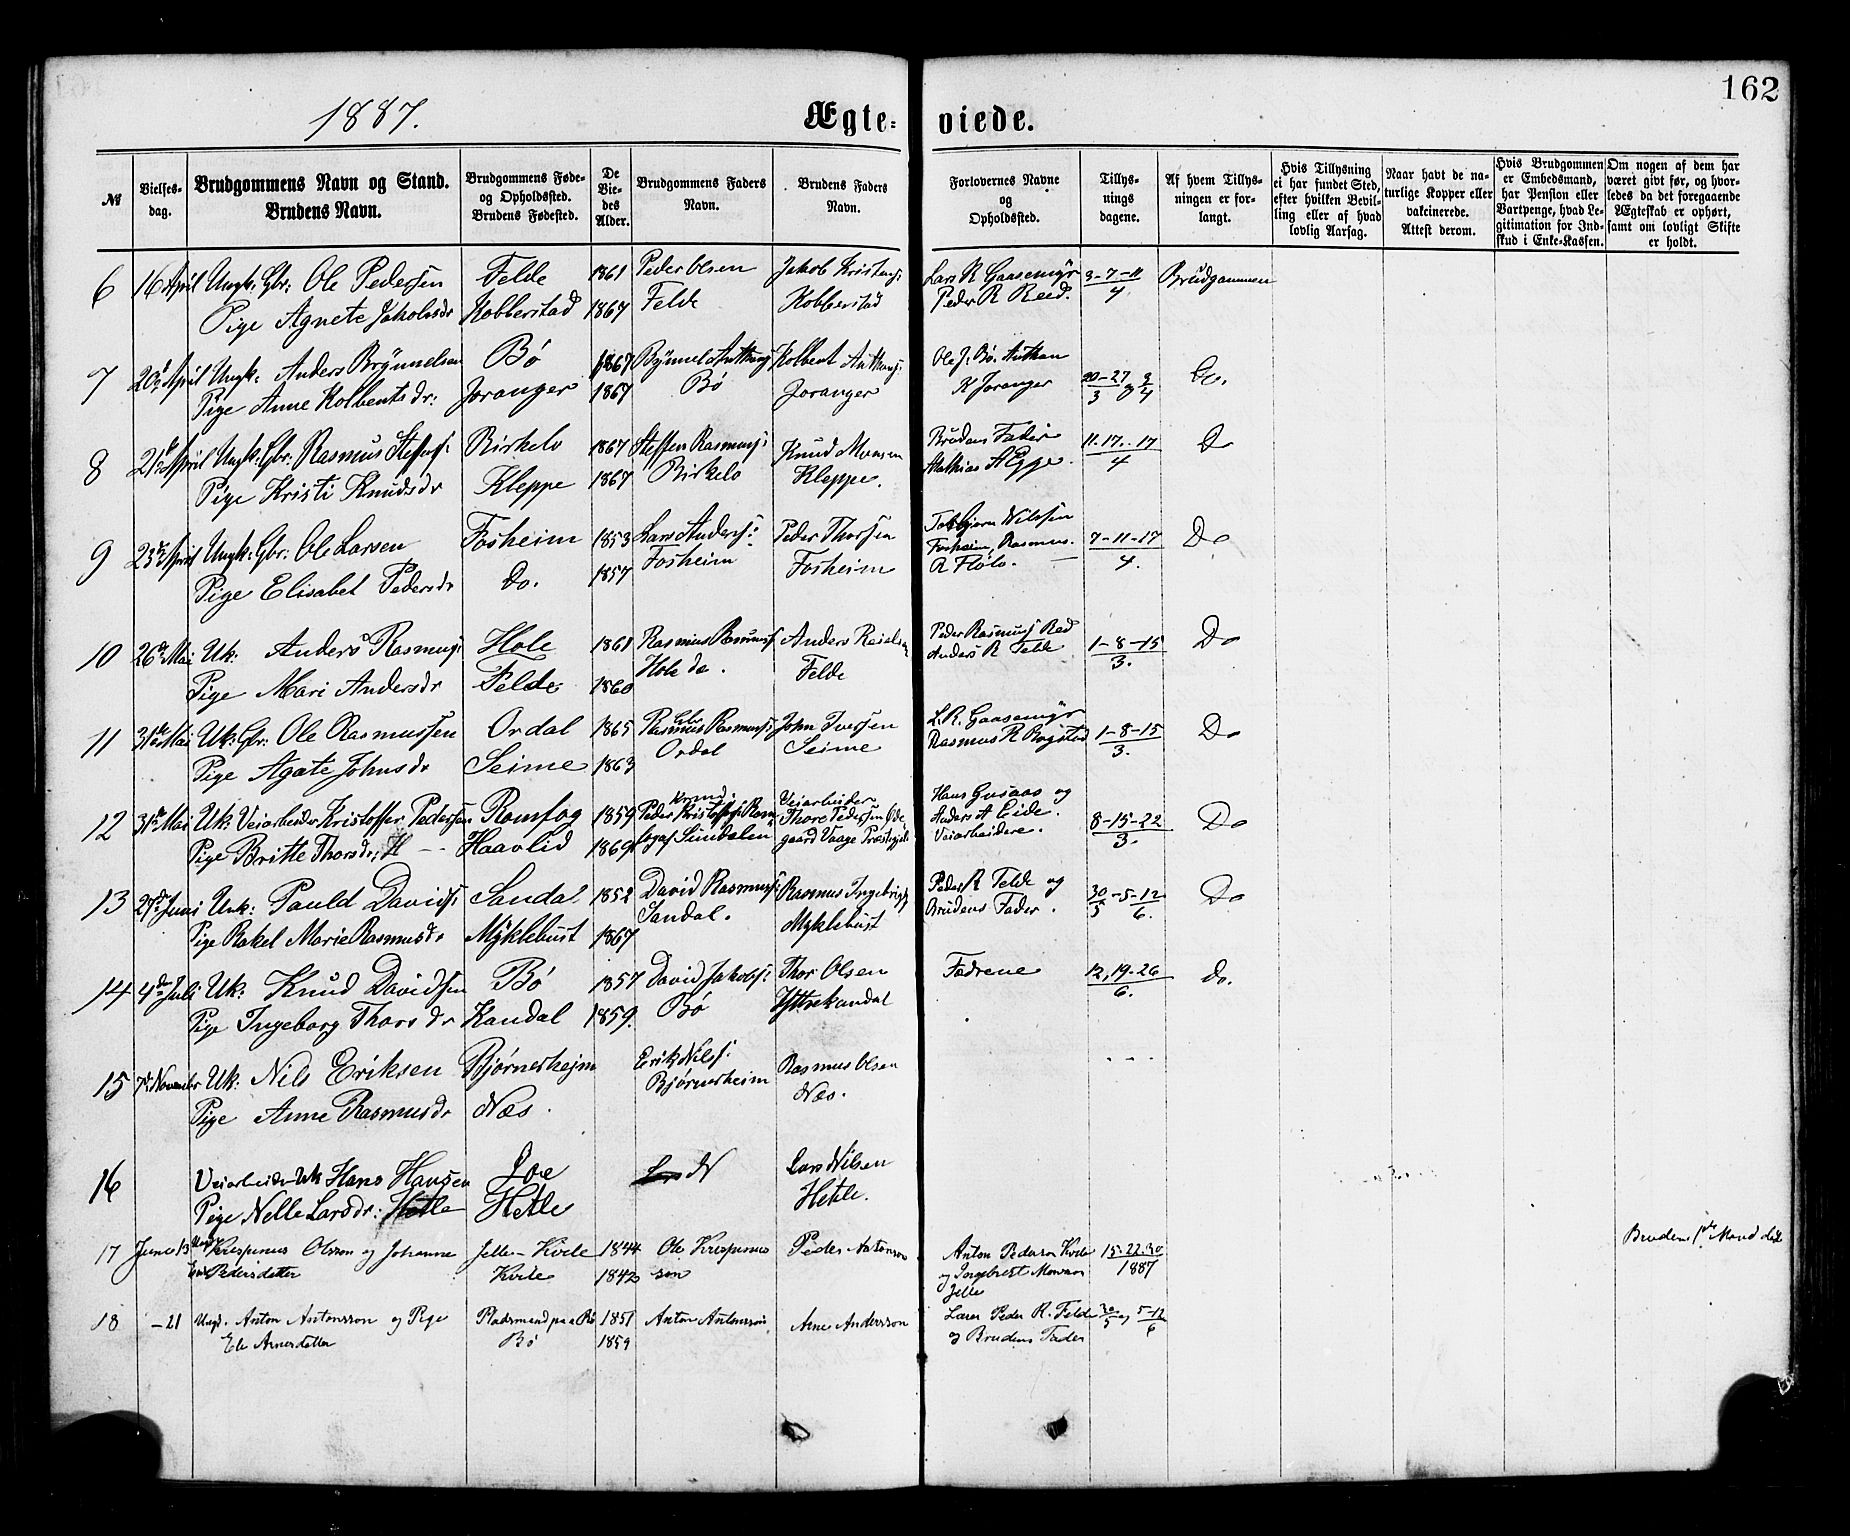 162
1887.
Ægte= viede.
№
Vielses-dag.
Brudgommens Navn og Stand. Brudens Navn.
Brudgommens Føde- og Opholdssted. Brudens Fødested.
De Vie-des Alder.
Brudgommens Faders Navn.
Brudens Faders Navn.
Forlovernes Navne og Opholdssted.
Tillys-nings dagene.
Af hvem Tillys-ningen er for-langt.
Hvis Tillysning ei har fundet Sted, efter hvilken Bevil-ling eller af hvad lovlig Aarsag.
Naar havt de na-turlige Kopper eller vakcinerede. Attest derom.
Hvis Brudgommen er Embedsmand, har Pension eller Vartpenge, hvad Le-gitimation for Ind-skud i Enke-Kassen.
Om nogen af dem har været givt før, og hvor-ledes da det foregaaende Ægteskab er ophørt, samt om lovligt Skifte er holdt.
6 16 April Ungk: Gbr: Ole Pedersen Felde 1861 Peder Olsen Jakob Kristens: Lars R Gaasemyr 3-7-11 Brudgommen
Pige Agnete Jakobsdr Kobberstad 1867 Felde Kobberstad Peder R Reed. 4.
7 20de April Ungk: Anders Brynnelsen Bø 1867 Brynnel Anthuns: Kolbent Anthuns: Ole J. Bø. Anthun 20-27 og 3 Do.
Pige Anne Kolbentsdr: Joranger 1867 Bø Joranger K Joranger 3 4
8 21de April Ungk: Gbr: Rasmus Stefens: Birkelo 1867 Steffen Rasmuss: Knud Monsen Brudens Fader 11.17.-17 Do
Pige Kristi Knudsdr Kleppe 1867 Birkelo Kleppe. Mathias A Egge. 4
9 23de April Ungk: Gbr: Ole Larsen Fosheim 1853 Lars Anderss: Peder Thorsen Torbjørn Nilssen 7-11-17 Do
Fosheim, Rasmus.
Pige Elisabet Pedersdr Do. 1857 Fosheim Fosheim R Fløto. 4.
10 26de Mai Uk: Anders Rasmuss: Hole 1861 Rasmus Rasmuss Anders Peder Rasmuss Red 1-8-15 Do
Pige Mari Andersdr Felde 1860 Hole Felde Anders R Felde 3.
11 31de Mai Uk: Gbr: Ole Rasmussen Ordal 1865 Gbr Rasmus Rasmuss: John Iversen L.R. Gaasemyr 1-8-15 Do
Pige Agate Johnsdr Seime 1863 Ordal Seime Rasmus R Rogstad 3.
12 31de Mai Uk: Veiarbeider Kristoffer Pedersen Romfog 1859 Peder Kristoffs: Veiarbeider Thore Pedersen Hans Gusaas og Anders A Eide. 8-15-22 Do
Pige Britte Thorsdr: H Haavlid 1869 Sundalen gaard Vaage Præstegjeld Veiarbeidere. 3.
13 2den Juni Uk: Pauld Davids: Sandal 1852 David Rasmuss: Rasmus Ingebrigts Peder R Felde og 30-5-12 Do
Pige Rakel Marie Rasmusdr Myklebust 1867 Sandal. Myklebust Brudens Fader. 5 6.
14 4de Juli Uk: Knud Davidsen Bø 1857 David Jakobs: Thor Olsen Fædrene 12,19-26 do.
Pige Ingeborg Thorsdr Kandal 1859. Bø Yttrekandal 6.
15 7de November Uk: Nils Eriksen Bjørnesheim Erik Nilss: Rasmus Olsen
Pige Anne Rasmusdr Næs. Bjørnesheim Næs.
16 Veiarbeider Uk Hans Hansen Loe N Lars Nilsen
Pige Nelle Larsdr: Hetle Hetle Hetle.
17 June 13 Ungk Krispinus Olsson og Johanne Jelle - Kvile 1844 Ole Krispinus Peder Antonson Anton Pederson Kvile 15.22.30 Brudens 1ste Mand død
Enke Pedersdatter Kvile 1842 son og Ingebregt Monsson 1887
Jelle
18 -21 Ungk. Anton Antonsson og Pige Pladsmand paa Bø 1851 Anton Antonsson Arne Andersson Lærer Peder R. Felde 30 og 5-12
Eli Arnesdatter Bø 1859 og Brudens Fader 5 6